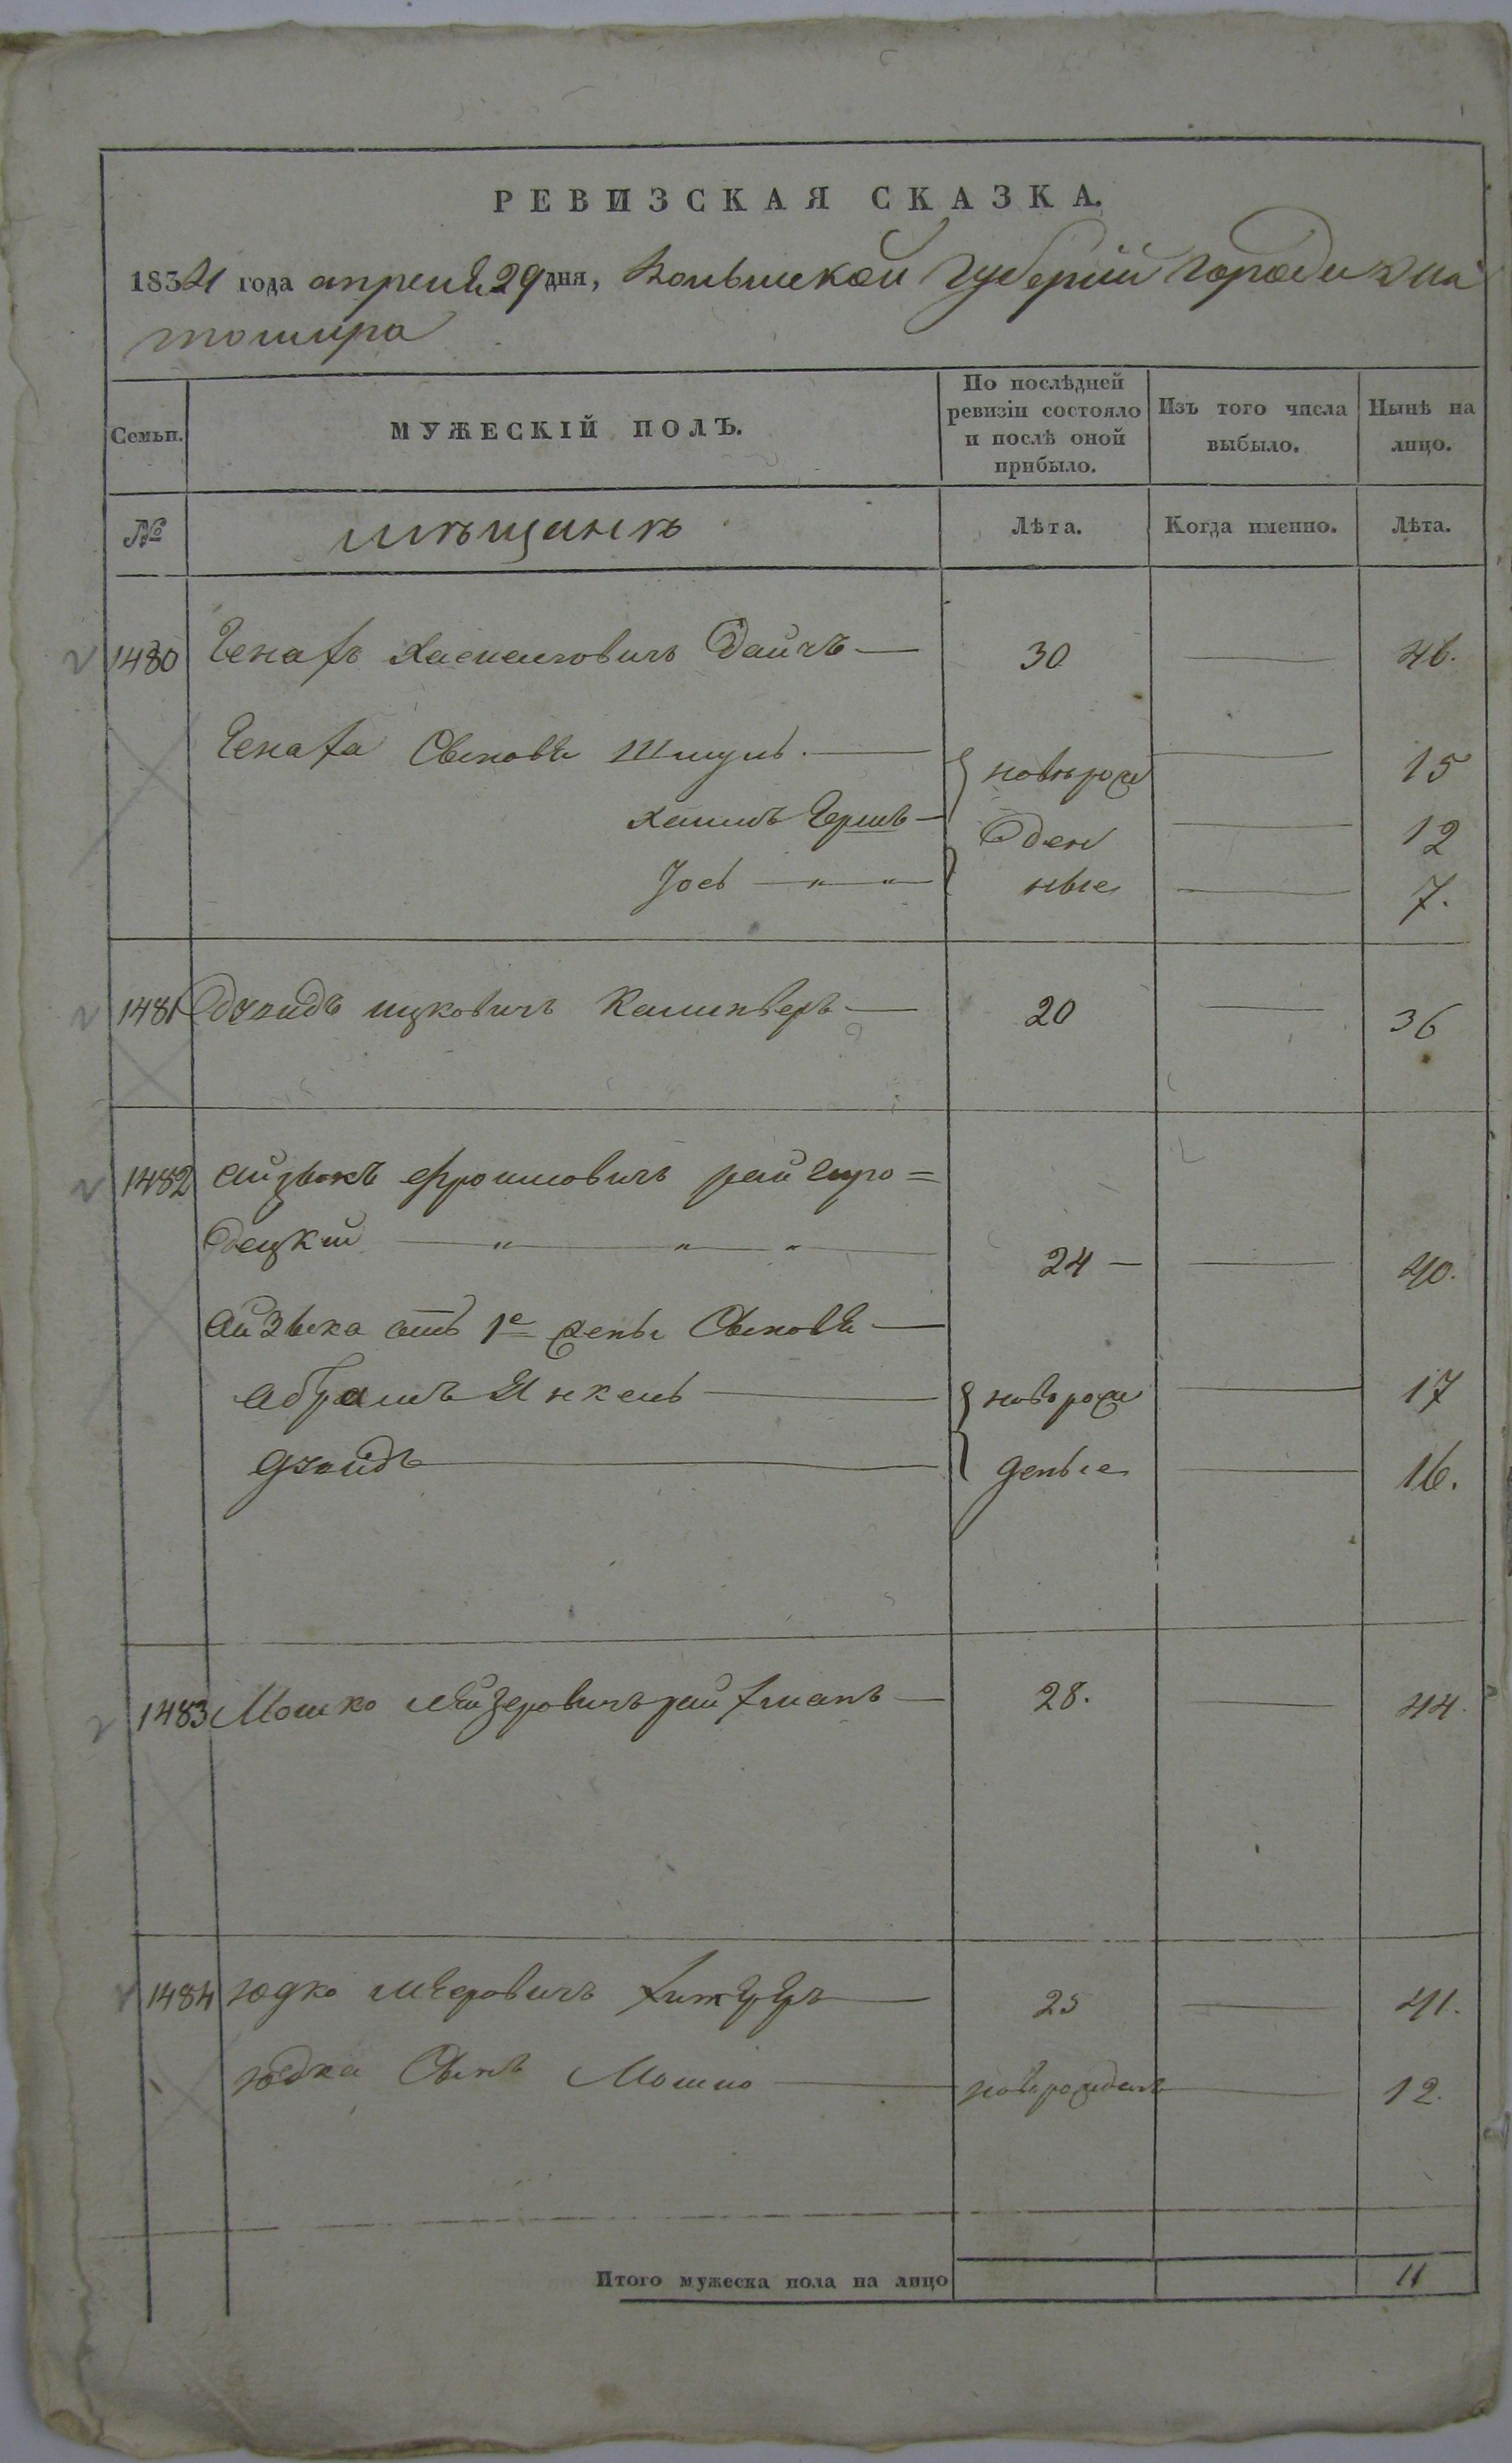 РЕВИЗСКАЯ СКАЗКА.
1834 года апреля 29 дня, Волынской Губерніи города Жи
томира
Семьи.
МУЖЕСКІЙ ПОЛЪ.
По послѣдней ревизіи состояло и послѣ оной прибыло.
Изъ того числа выбыло.
Нынѣ на лицо.
№
мѣщанѣ
Лѣта.
Когда именно.
Лѣта.
1480 Генахъ Дайчъ — 30 — 46.
Генаха Сыновья Шмуль — новорож — 15
Хаимъ Гершъ — ден — 12
Іось — " — " — ные — 7.
1481 Дувидъ Ицковичъ — 20 — 36
1482 Айзыкъ Фроимовичъ Райгоро=
децкій — " — " — " — 24 — — 40.
Айзыка отъ 1е жены Сыновья —
Абрамъ Янкель — новорож — 17
Дувидъ — деные — 16.
1483 Мошко Лейзеровичъ Райхманъ — 28. — 44.
1484 Юдко Меровичъ — 25 — 41.
Юдка Сынъ Мошко — новорожденъ — 12.
Итого мужеска пола на лицо 11